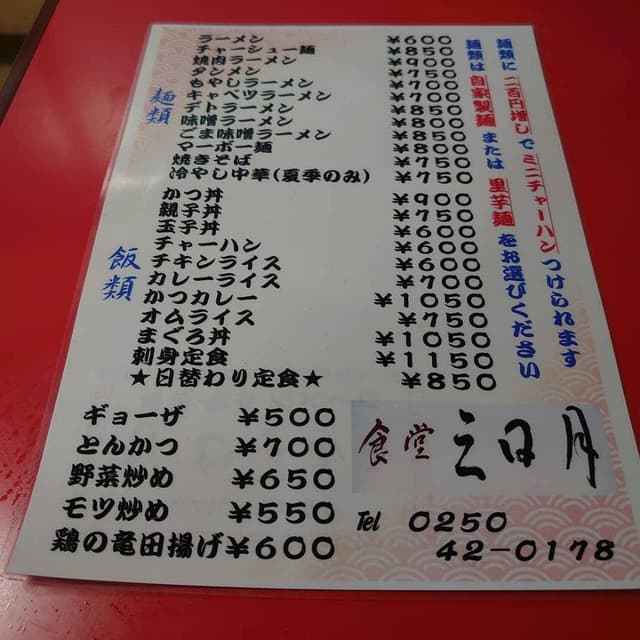 麺類
ラーメン ¥600
チャーシュー麺 ¥850
焼肉ラーメン ¥900
タンメン ¥750
もやしラーメン ¥700
キャベツラーメン ¥700
デトラーメン
味噌ラーメン ¥800
ごま味噌ラーメン
マーボー麺 ¥800
焼きそば ¥750
冷やし中華(夏季のみ) ¥750
飯類
かつ丼 ¥900
親子丼 ¥750
玉子丼 ¥600
チャーハン ¥600
チキンライス ¥600
カレーライス ¥700
かつカレー ¥1050
オムライス ¥750
まぐろ丼 ¥1050
刺身定食 ¥1150
★日替わり定食★ ¥850
麺類に二百円増しでミニチャーハンつけられます
麺類は自家製麺または里芋麺をお選びください
ギョーザ ¥500
とんかつ ¥700
野菜炒め ¥650
モツ炒め ¥550
鶏の竜田揚げ ¥600
食堂 三日月
Tel 0250
42-0178